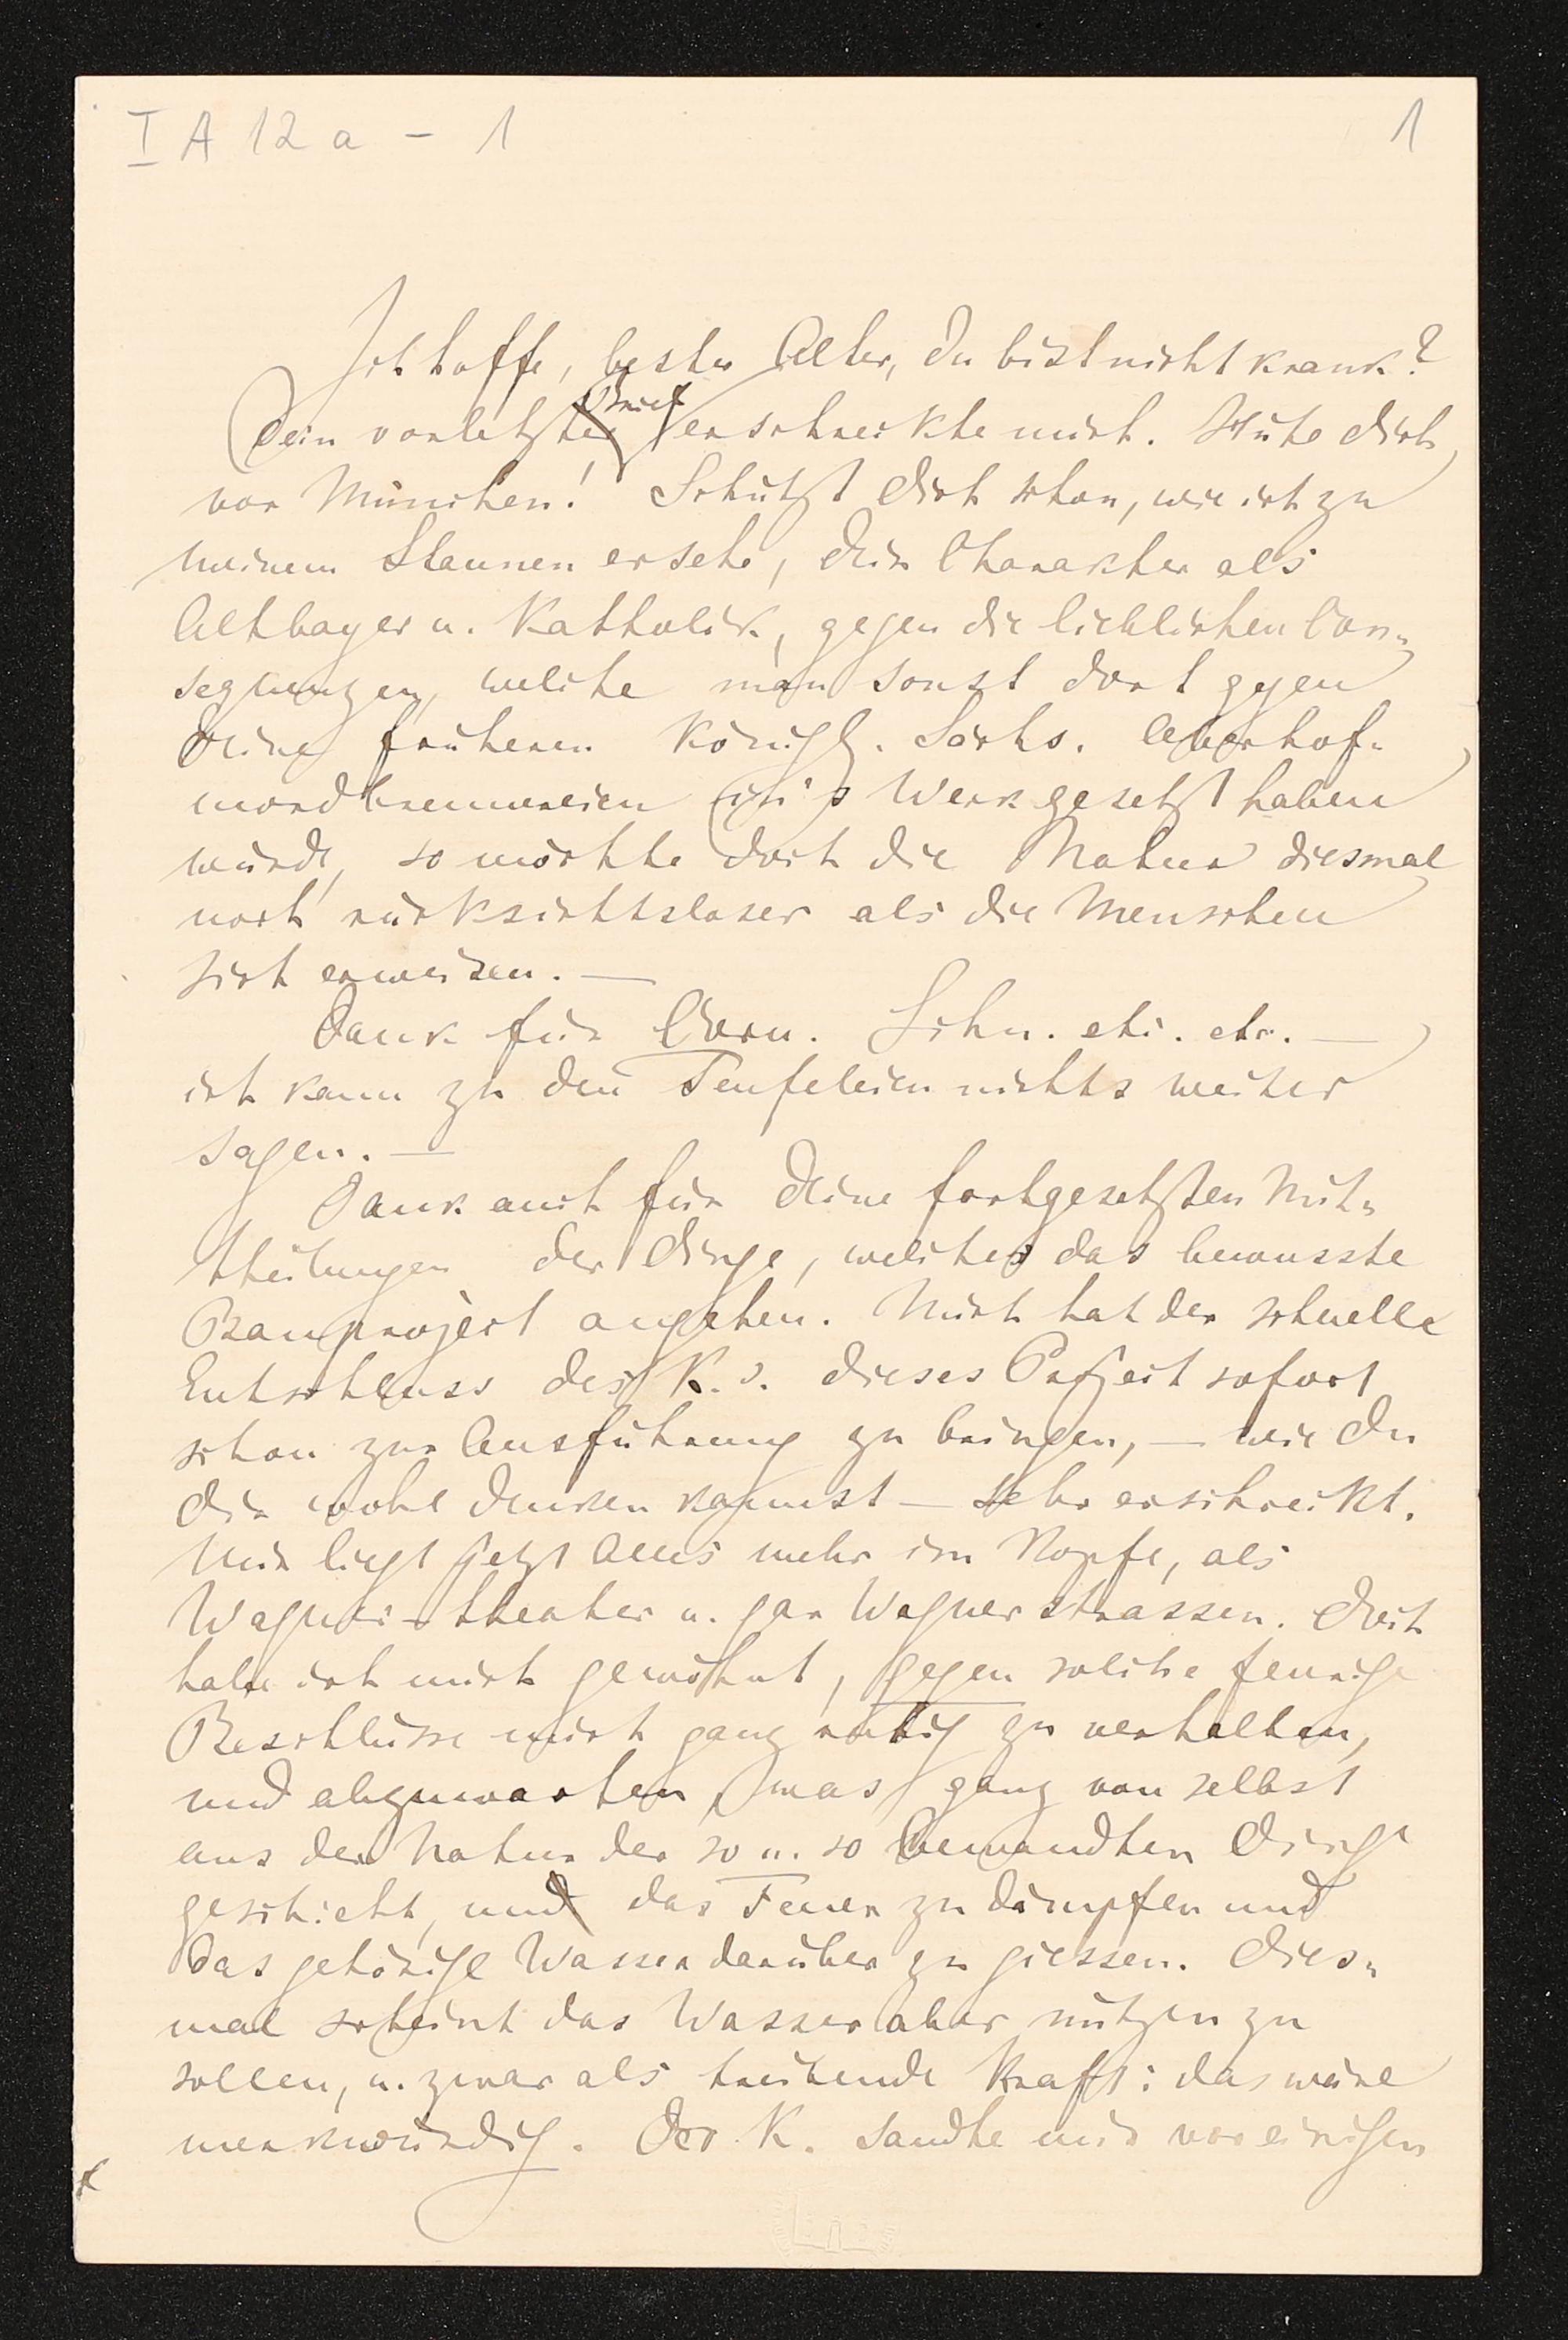 I A 12 a – 1
1
Ich hoffe, bester Alter, Du bist nicht krank?
Brief
Dein vorletzter erschreckte mich. Hüte Dich
vor München! Schützt Dich schon, wie ich zu
meinem Staunen ersehe, Dein Charakter als
Altbayer u. Katholik, gegen die lieblichen Con-
sequenzen, welche man sonst dort gegen
Deine früheren Königl. Sächs. Oberhof-
mordbrennereien in's Werk gesetzt haben
würde, so möchte doch die Natur diesmal
noch rücksichtsloser als die Menschen
sich erweisen. —
Dank für Corn. Schn. etc. etc. —
ich kann zu den Teufeleien nichts weiter
sagen. —
Dank auch für Deine fortgesetzten Mit-
theilungen der Dinge, welche das bewusste
Bauproject angehen. Mich hat der schnelle
Entschluss des K.'s dieses Project sofort
schon zur Ausführung zu bringen, — wie Du
Dir wohl denken kannst — sehr erschreckt.
Mir liegt jetzt Alles mehr im Kopfe, als
Wagner-theater u. gar Wagnerstrassen. Doch
habe ich mich gewöhnt, gegen solche feurige
Beschlüsse mich ganz ruhig zu verhalten,
und abzuwarten was ganz von selbst
aus der Natur der so u. so bewandten Dinge
geschieht, und das Feuer zu dämpfen und
das gehörige Wasser darüber zu giessen. Dies-
mal scheint das Wasser aber nützen zu
sollen, u. zwar als treibende Kraft: das wäre
merkwürdig. Der K. sandte mir vor einigen